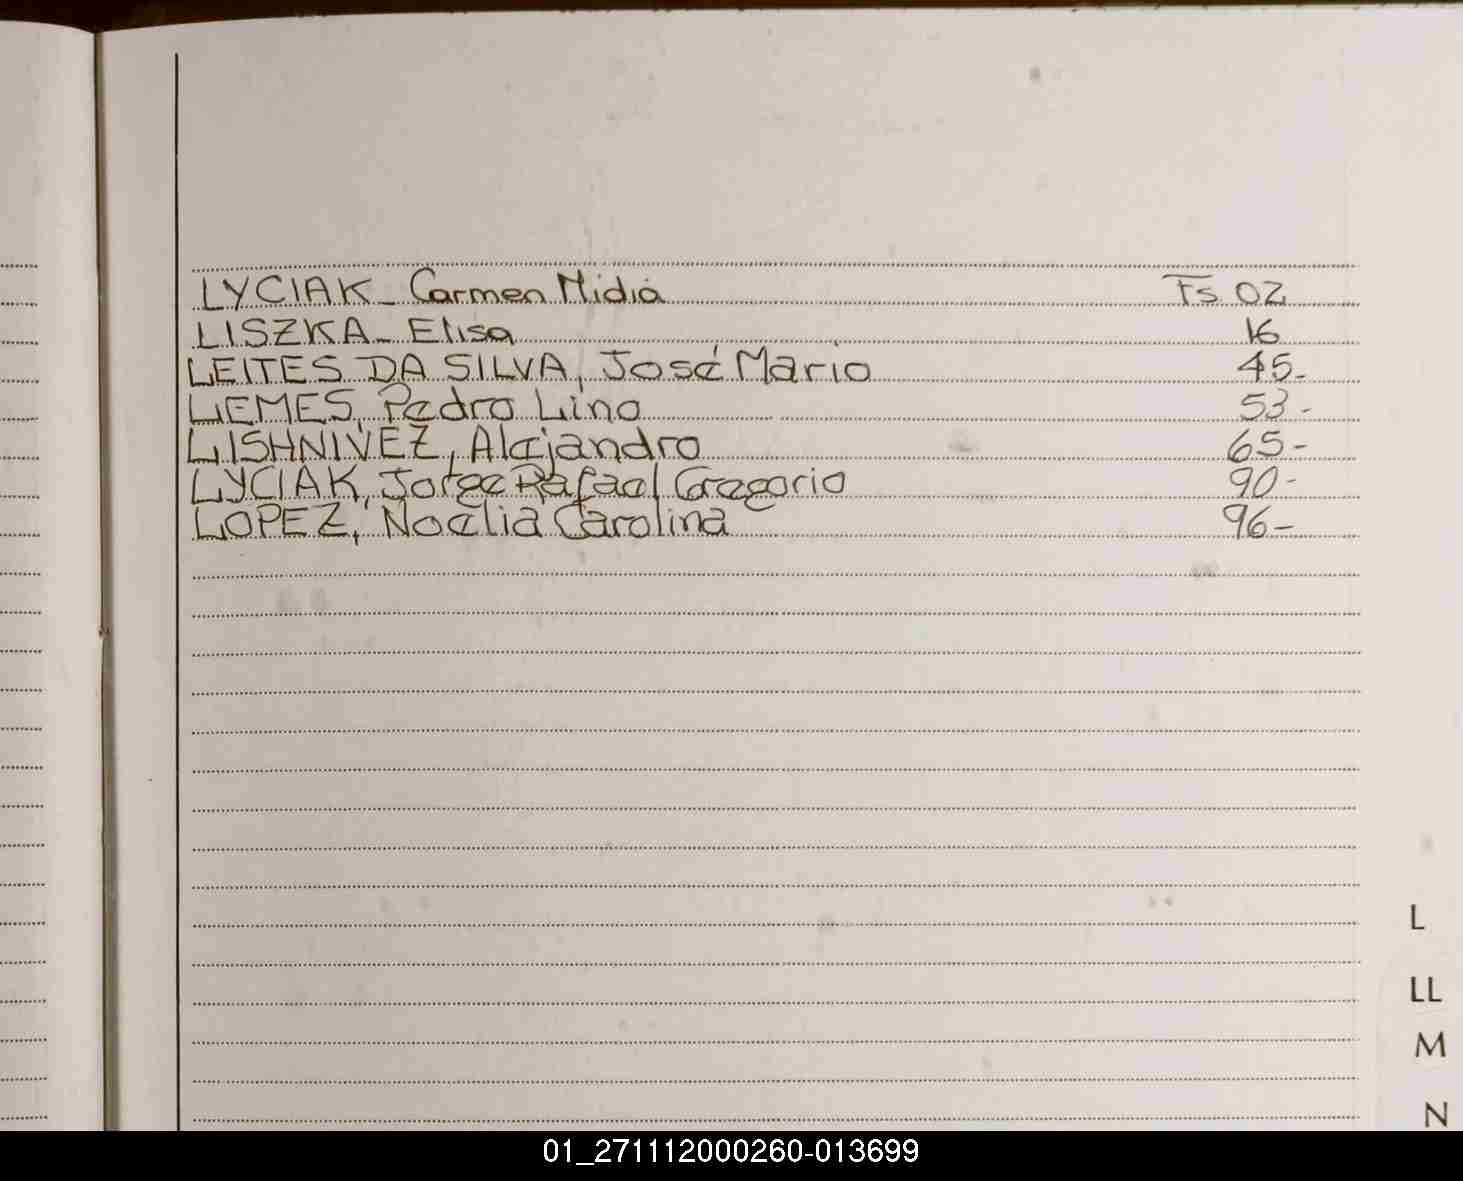 LYCIAK - Carmen Midia Fs 02
LISZKA - Elisa 16
LEITES DA SILVA, José Mario 45-
LEMES, Pedro Lino 53-
LISHNIVEZ, Alejandro 65-
LYCIAK, Jorge Rafael Gregorio 90-
LOPEZ, Noelia Carolina 96-
L
LL
M
N
01_271112000260-013699